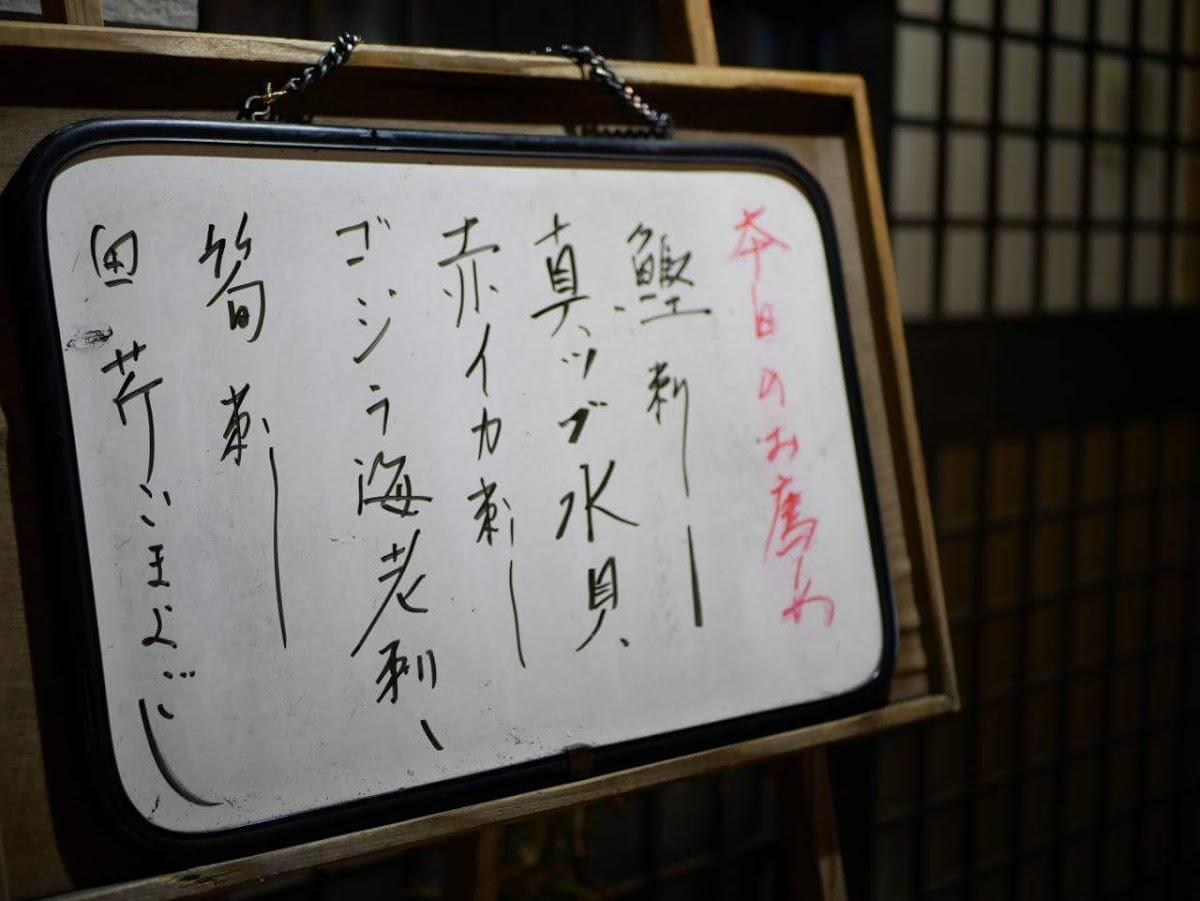 本日のお薦め
鰹刺
真ツブ水貝
赤イカ刺
ゴジラ海老刺
筍刺
田芹ごまよごし